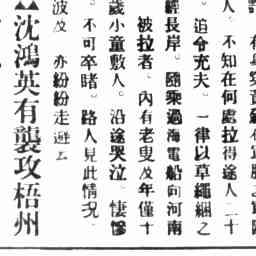 人。不知在何處拉得途人二十
。迫令充夫。一律以草繩綑之
經長岸。隨乘過海電船向河南
被拉者。內有老叟及年僅十
歲小童敷人。沿途哭泣。悽慘
。不可卒睹。路人見此情况。
波及。亦紛紛走避云
▲▲沈鴻英有襲攻梧州